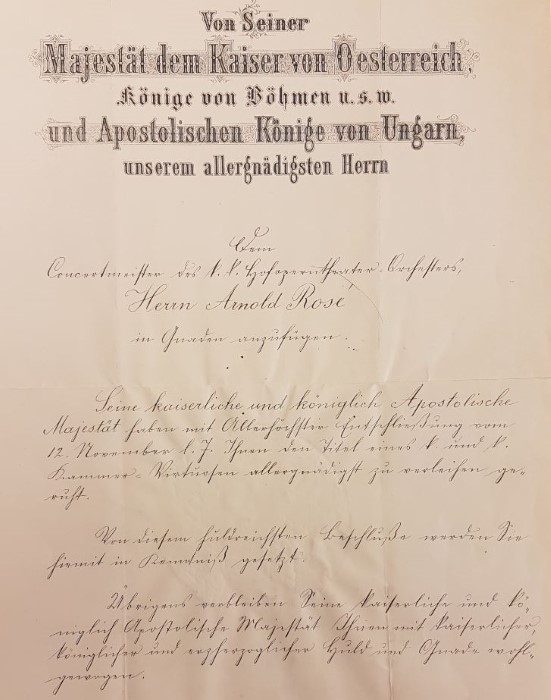 Von Seiner
Majestät dem Kaiser von Oesterreich,
Könige von Böhmen u. s. w.
und Apostolischen Könige von Ungarn,
unserem allergnädigsten Herrn
Dem
Concertmeister des k. k. Hofoperntheater-Orchesters,
Herrn Arnold Rosé
in Gnaden anzufügen.
Seine kaiserliche und königlich Apostolische
Majestät haben mit Allerhöchster Entschließung vom
12. November l. J. Ihnen den Titel eines k. und k.
Kammer-Virtuosen allergnädigst zu verleihen ge-
ruht.
Von diesem huldreichsten Beschluße werden Sie
hiemit in Kenntniß gesetzt.
Übrigens verbleiben Seine kaiserliche und kö-
niglich Apostolische Majestät Ihnen mit kaiserlicher,
königlicher und erzherzoglicher Huld und Gnade wohl-
gewogen.